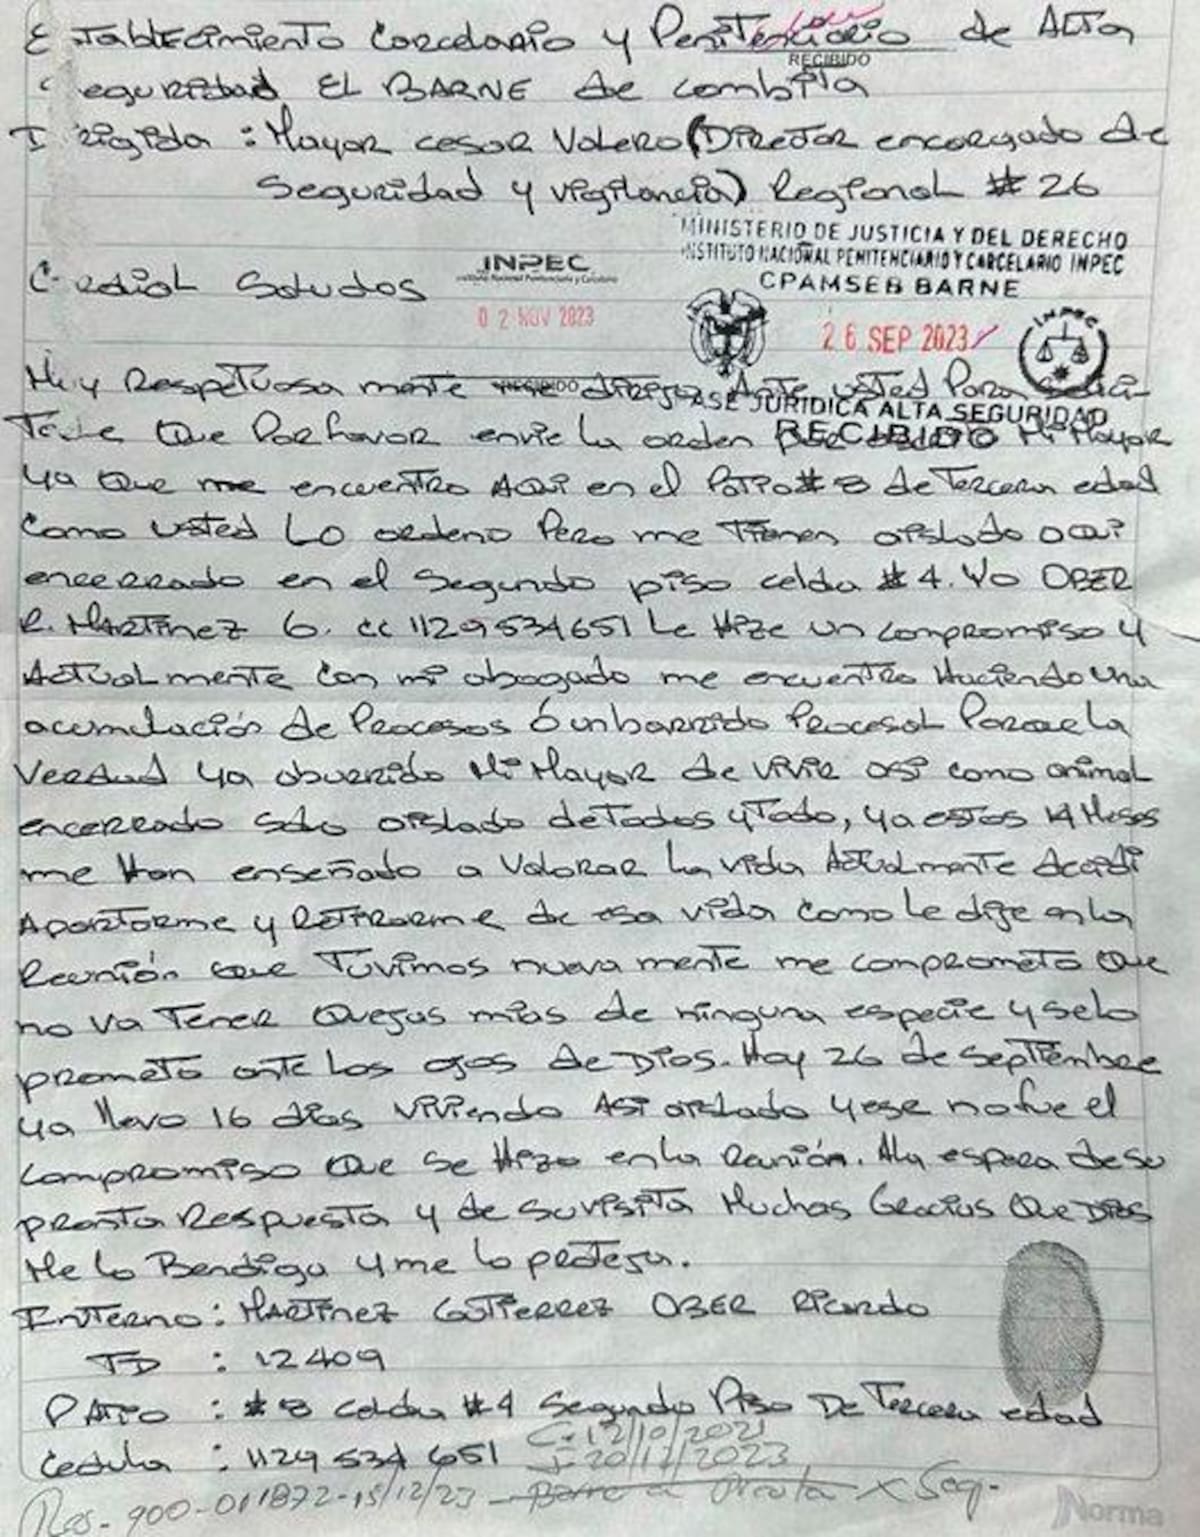 Establecimiento Carcelario y Penitenciario de Alta
RECIBIDO
Seguridad EL BARNE de combita
Dirigida : Mayor cesar Valero (Director encargado de
Seguridad y vigilancia) Regional #26
MINISTERIO DE JUSTICIA Y DEL DERECHO
INSTITUTO NACIONAL PENITENCIARIO Y CARCELARIO INPEC
CPAMSEB BARNE
INPEC
Instituto Nacional Penitenciario y Carcelario
Cordial Saludos
02 NOV 2023
26 SEP 2023
INPEC
Muy Respetuosa mente me dirijo Ante usted Para Solici-
RECIBIDO
ASE JURIDICA ALTA SEGURIDAD
RECIBIDO
Tarle Que Porfavor envie la orden Mi Mayor
ya Que me encuentro AQui en el Patio #8 de Tercera edad
Como usted Lo ordeno Pero me Tienen aislado aqui
encerrado en el Segundo piso celda #4. Yo OBER
R. MARTinez G. cc 1129534651 Le Hize un compromiso y
Actualmente Con mi abogado me encuentro Haciendo una
acumulación de Procesos ó un barrido Procesal Porae la
Verdad ya aburrido Mi Mayor de vivir asi como animal
encerrado solo aislado de Todos y Todo, ya estos 14 Meses
me Han enseñado a Valorar La vida Actualmente decidi
Apartarme y Retirarme de esa vida Como le dije en la
Reunión que Tuvimos nueva mente me comprometo Que
no va Tener Quejas mias de ninguna especie y selo
prometo ante Los ojos de Dios. Hoy 26 de Septiembre
ya llevo 16 dias viviendo Asi aislado y ese no fue el
Compromiso Que se Hizo en la Reunión. A la espera de su
pronta Respuesta y de su visita Muchas Gracias Que Dios
Me lo Bendiga y me lo proteja.
Interno : MARTinez GUTierrez OBER Ricardo
TD : 12409
PATIO : #8 Celda #4 Segundo Piso De Tercera edad
C- 12/10/2021
Cedula : 1129 534 651
J- 20/12/2023
Res- 900-011872-15/12/23 - x Seg.
Norma